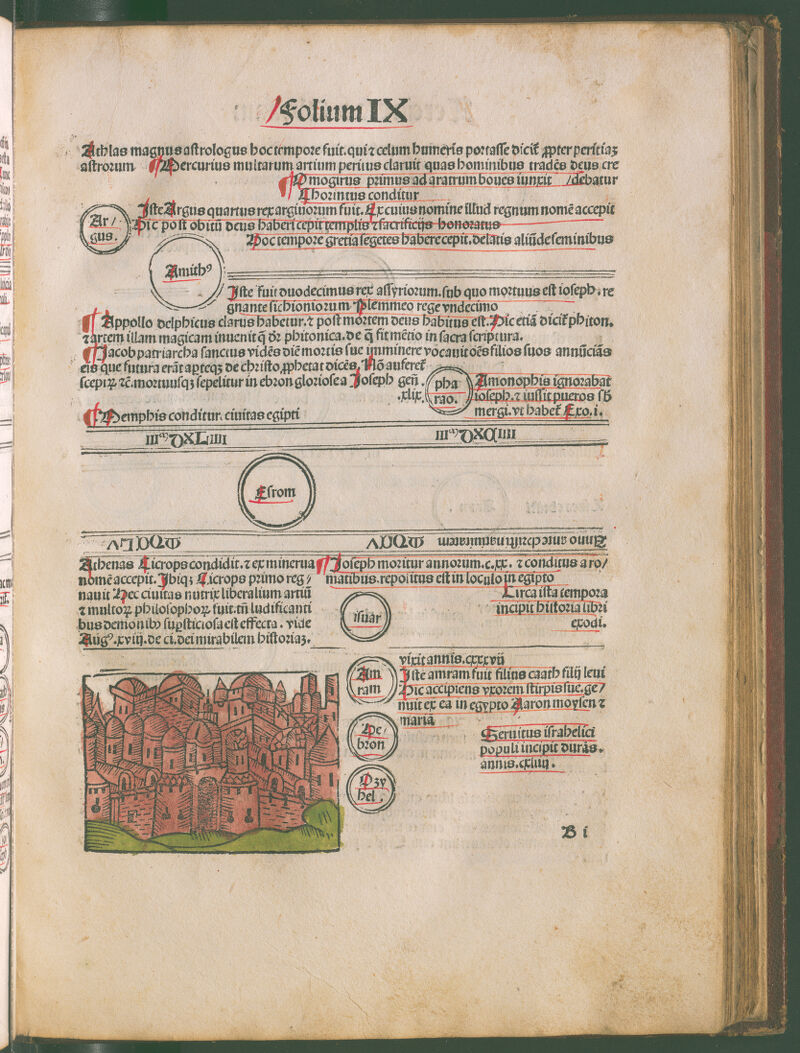 Folium IX
Athlas magnus astrologus hoc tempore fuit. qui ⁊ celum humeris portasse dicit᷑ ꝓpter peritiaꝫ
astrorum ¶ Mercurius multarum artium peritus claruit quas hominibus tradēs deus cre
¶ Omogirus primus ad aratrum boues iunxit /debatur
Chorintus conditur
Ar/
gus.
Iste Argus quartus rex arginorum fuit. Ex cuius nomine illud regnum nomē accepit
Hic post obitū deus haberi cepit templis ⁊ sacrificijs honoratus
Hoc tempore gretia segetes habere cepit. delatis aliūde seminibus
Amithꝰ
Iste fuit duodecimus rex assyriorum. sub quo mortuus est ioseph. re
gnante sichioniorum Plemmeo rege vndecimo
¶ Appollo delphicus clarus habetur. ⁊ post mortem deus habitus est. Hic etiā dicit᷑ phiton.
⁊ artem illam magicam inuenit q̄ dr̄ phitonica. de q̄ fit mētio in sacra scriptura.
¶ Iacob patriarcha sanctus vidēs diē mortis sue imminere vocauit oēs filios suos annūciās
eis que futura erāt aperteqꝫ de christo ꝓphetat dicēs. Nō auferet᷑
sceptꝝ ⁊c̄. mortuusqꝫ sepelitur in ebron gloriose a Ioseph gen̄.
.xlix.
pha
rao.
Amonophis ignorabat
ioseph. ⁊ iussit pueros sb̄
mergi. vt habet᷑ Exo. i.
¶ Memphis conditur. ciuitas egipti
Esrom
Anno ante christi natiuitatem
Athenas Cicrops condidit. ⁊ ex minerua
nomē accepit. Ibiqꝫ Cicrops primo reg/
nauit Hec ciuitas nutrix liberalium artiū
⁊ multoꝝ philosophoꝝ fuit. tn̄ ludificanti
bus demonibꝰ suꝑsticiosa est effecta. vide
Augꝰ. xviij. de ci. dei mirabilem historiaꝫ.
¶ Ioseph moritur annorum. c. xx. ⁊ conditus aro/
matibus. repositus est in loculo in egipto
Circa ista tempora
incipit historia libri
exodi.
isuar
Am
ram
vixit annis. cxxxvij
Iste amram fuit filius caath filij leui
Hic accipiens vxorem stirpis sue. ge/
nuit ex ea in egypto Aaron moysen ⁊
maria
He/
bron
Ozy
hel.
Seruitus israhelici
populi incipit durās.
annis. cxliiij.
B i